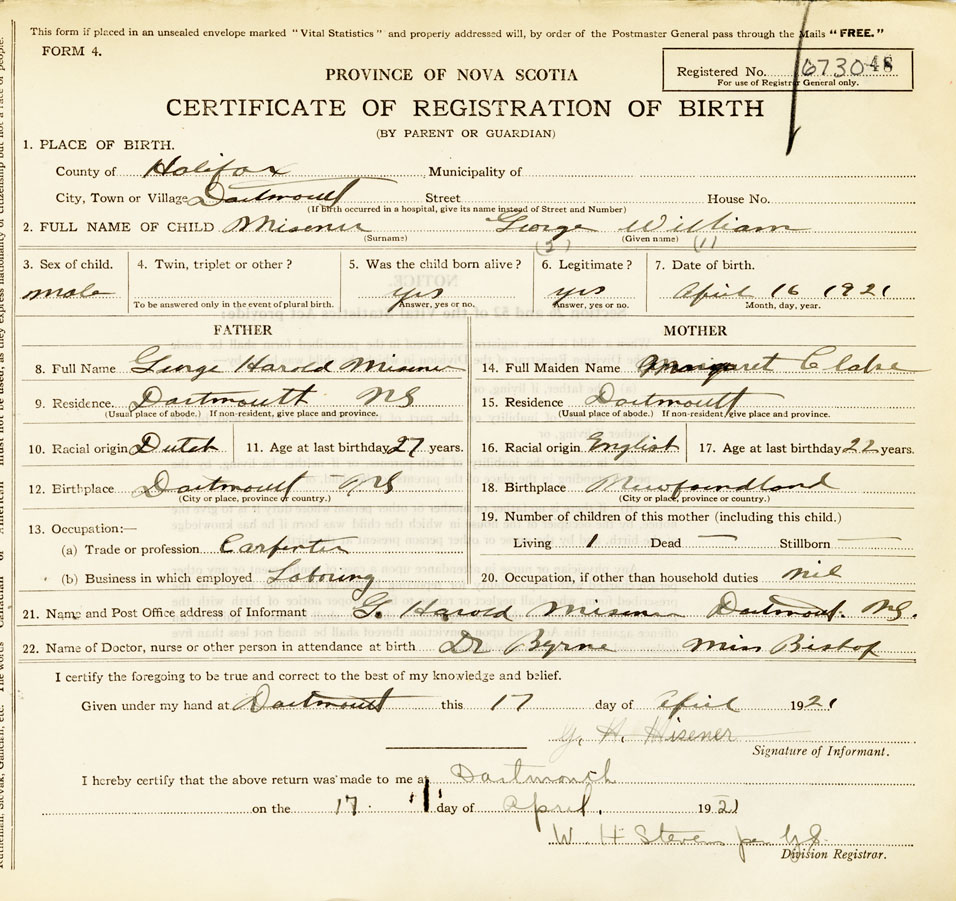 This form if placed in an unsealed envelope marked "Vital Statistics" and properly addressed will, by order of the Postmaster General pass through the Mails "FREE."
FORM 4.
PROVINCE OF NOVA SCOTIA
Registered No. 673048
For use of Registrar General only.
CERTIFICATE OF REGISTRATION OF BIRTH
(BY PARENT OR GUARDIAN)
1. PLACE OF BIRTH.
County of Halifax Municipality of
City, Town or Village Dartmouth Street House No.
(If birth occurred in a hospital, give its name instead of Street and Number)
2. FULL NAME OF CHILD Misener George William
(Surname) (2) (Given name) (1)
3. Sex of child. 4. Twin, triplet or other? 5. Was the child born alive? 6. Legitimate? 7. Date of birth.
male yes yes April 16 1921
To be answered only in the event of plural birth. Answer, yes or no. Answer, yes or no. Month, day, year.
FATHER MOTHER
8. Full Name George Harold Misener 14. Full Maiden Name Margaret
9. Residence. Dartmouth NS 15. Residence Dartmouth
(Usual place of abode.) If non-resident, give place and province. (Usual place of abode.) If non-resident, give place and province.
10. Racial origin Dutch 11. Age at last birthday 27 years. 16. Racial origin English 17. Age at last birthday 22 years.
12. Birthplace Dartmouth NS 18. Birthplace Newfoundland
(City or place, province or country.) (City or place, province or country.)
13. Occupation:— 19. Number of children of this mother (including this child.)
(a) Trade or profession Carpenter Living 1 Dead — Stillborn —
(b) Business in which employed Laboring 20. Occupation, if other than household duties nil
21. Name and Post Office address of Informant G. Harold Misener Dartmouth. NS.
22. Name of Doctor, nurse or other person in attendance at birth Dr Byrne Miss Bishop
I certify the foregoing to be true and correct to the best of my knowledge and belief.
Given under my hand at Dartmouth this 17 day of April 1921
G. H. Misener
Signature of Informant.
I hereby certify that the above return was made to me at Dartmouth
on the 17 day of April, 1921
W. H. Stevens
Division Registrar.